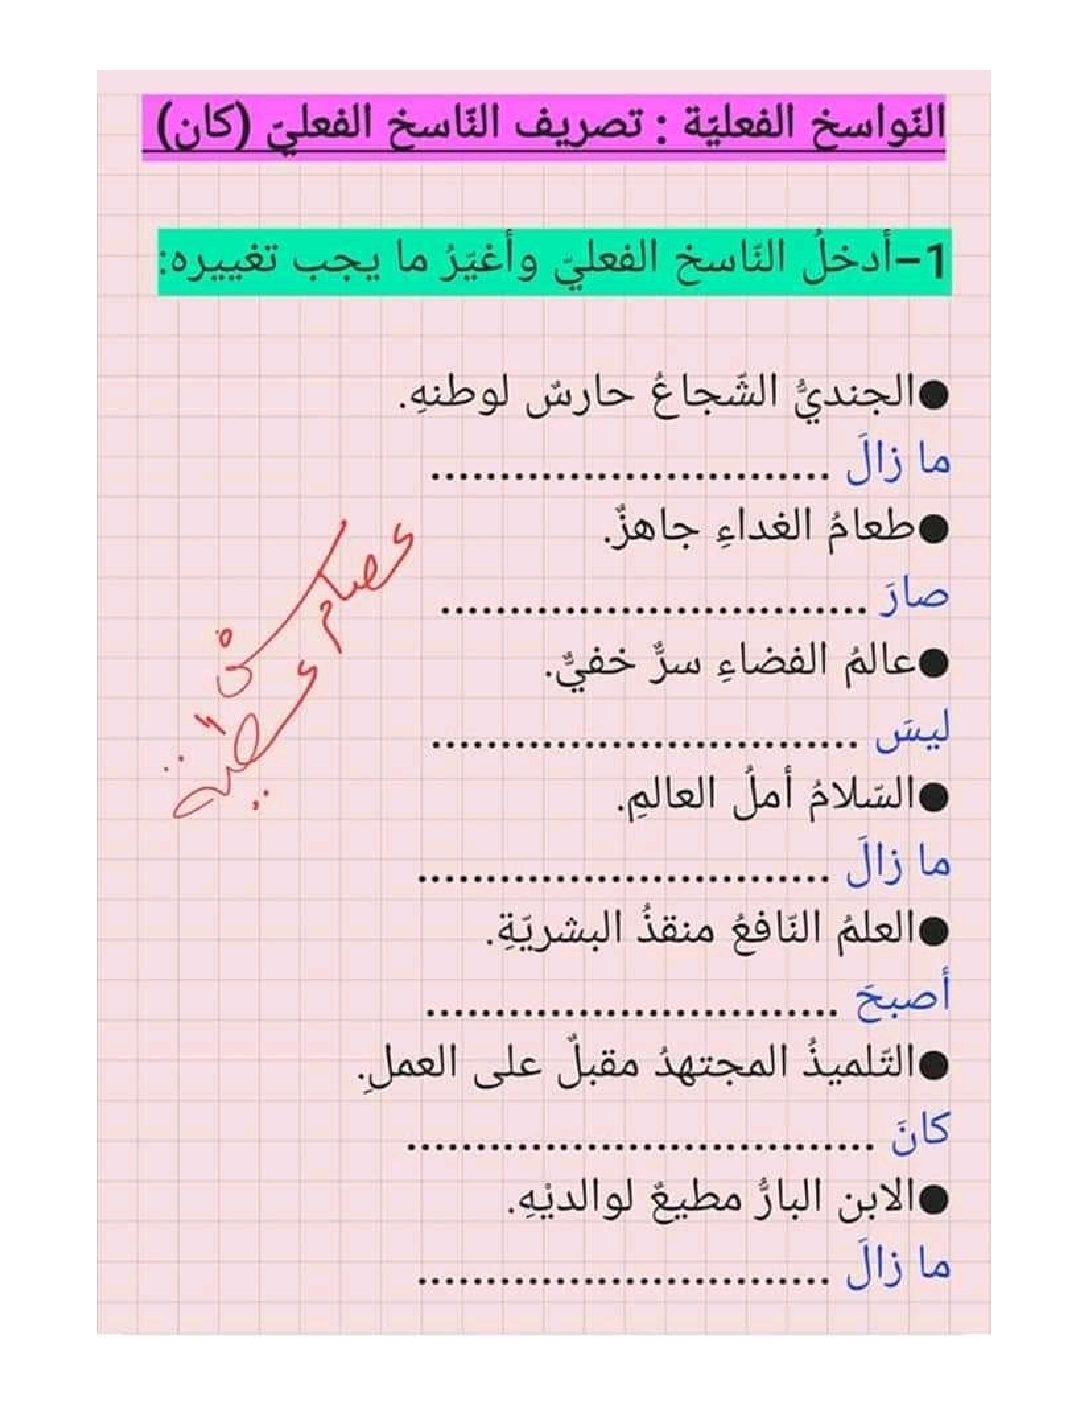 النّواسخ الفعليّة : تصريف النّاسخ الفعليّ (كان)
1–أدخلُ النّاسخ الفعليّ وأغيّرُ ما يجب تغييره:
●الجنديُّ الشّجاعُ حارسٌ لوطنهِ.
ما زالَ .............................
●طعامُ الغداءِ جاهزٌ.
صارَ ...............................
●عالمُ الفضاءِ سرٌّ خفيٌّ.
ليسَ ...............................
●السّلامُ أملُ العالمِ.
ما زالَ ..............................
●العلمُ النّافعُ منقذُ البشريّةِ.
أصبحَ ..............................
●التّلميذُ المجتهدُ مقبلٌ على العملِ.
كانَ ..................................
●الابن البارُّ مطيعٌ لوالديْهِ.
ما زالَ ..............................
عصام